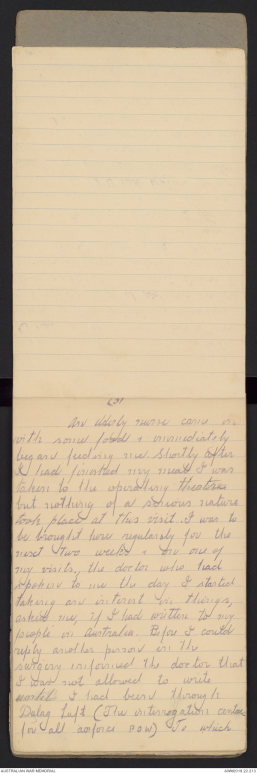 (3)
An elderly nurse came in
with some food & immediately
began feeding me. Shortly after
I had finished my meal I was
taken to the operating theatre
but nothing of a serious nature
took place at this visit. I was to
be brought here regularly for the
next two weeks & on one of
my visits, the doctor who had
spoken to me the day I started
taking an interest in things,
asked me, if I had written to my
people in Australia. Before I could
reply another person in the
surgery informed the doctor that
I was not allowed to write
until I had been through
Dulag Luft (The interrogation centre
for all airforce POW) To which
AUSTRALIAN WAR MEMORIAL